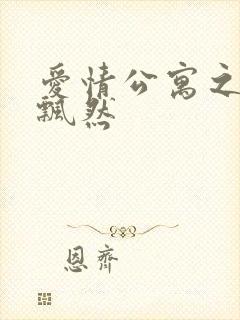 愛情公寓之
飄然
恩齊